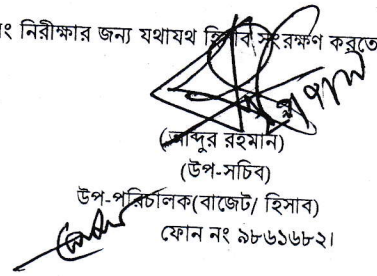 ং নিরীক্ষার জন্য যথাযথ হিসাব সংরক্ষণ করতে
(আব্দুর রহমান)
(উপ-সচিব)
উপ-পরিচালক(বাজেট/ হিসাব)
ফোন নং ৯৮৬১৬৮২।